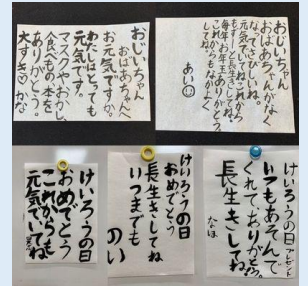 おじいちゃん
おばあちゃんへ
お元気ですか。
わたしはとっても
元気です。
マスクやおかし、
食べもの本を
ありがとう。
大すき♡かな
おじいちゃん
おばあちゃんがなく
なってさびしいね。
元気でいてねこれから
もずーっと長生きしてね。
毎年お年玉ありがとう。
これからもなかよく
してね。
あい
けいろうの日
おめでとう
これからも
元気でいてね
けいろうの日
おめでとう
長生きしてね
いつまでも
のい
けいろうの日プレゼント
いつもあそんで
くれてありがとう。
長生きしてね
なほ